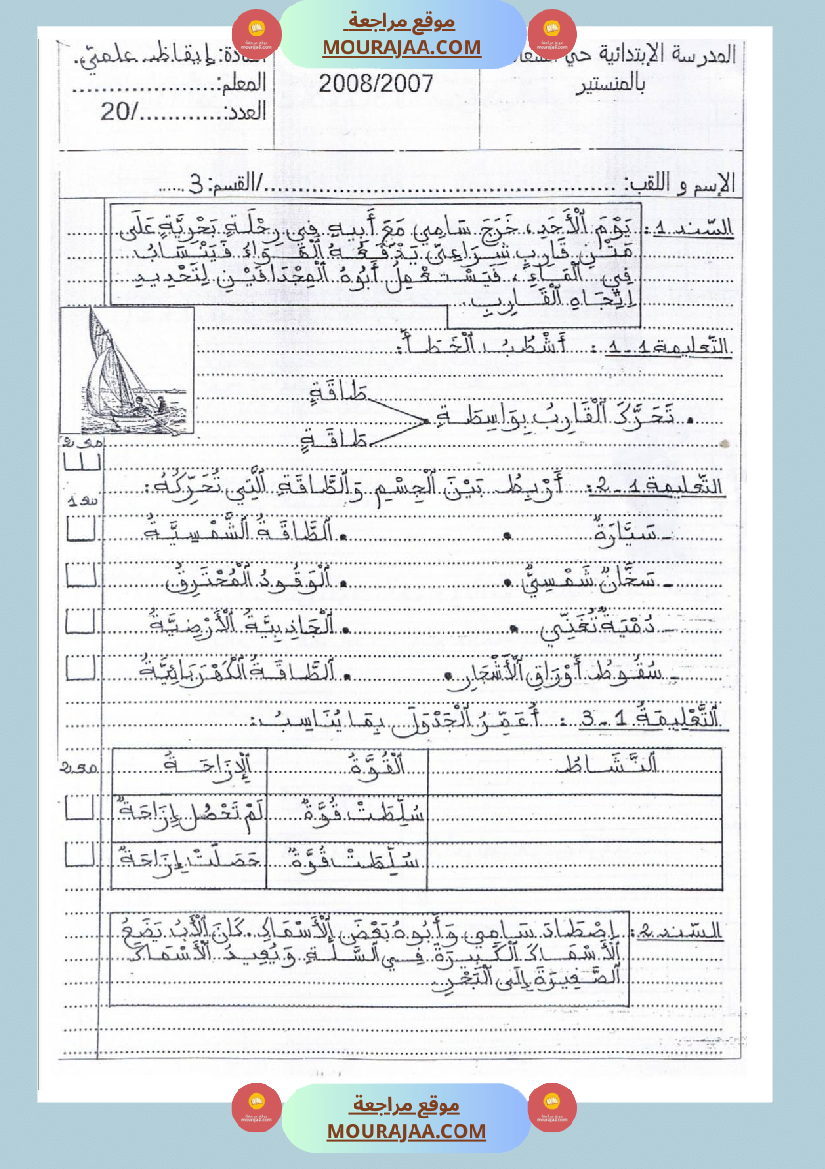 موقع مراجعة
MOURAJAA.COM
المدرسة الإبتدائية حي
بالمنستير
2008/2007
المادة: إيقاظ علمي.
المعلم:....................
العدد:............/20
الإسم و اللقب: ..................................................../القسم: 3 ......
السّند 1: يَوْمَ ٱلْأَحَدِ، خَرَجَ سَامِي مَعَ أَبِيهِ فِي رِحْلَةٍ بَحْرِيَّةٍ عَلَى
مَتْنِ قَارِبٍ شِرَاعِيٍّ يَدْفَعُهُ ٱلْهَوَاءُ فَيَنْسَابُ
فِي ٱلْمَاءِ، فَيَسْتَعْمِلُ أَبُوهُ ٱلْمِجْدَافَيْنِ لِتَحْدِيدِ
اِتِّجَاهِ ٱلْقَارِبِ.
التّعليمة 1-1: أَشْطُبُ ٱلْخَطَأَ:
طَاقَةٍ
• تَحَرَّكَ ٱلْقَارِبُ بِوَاسِطَةِ
طَاقَةٍ
2,50
التّعليمة 1-2: أَرْبِطُ بَيْنَ ٱلْجِسْمِ وَٱلطَّاقَةِ ٱلَّتِي تُحَرِّكُهُ:
- سَيَّارَةٌ • • ٱلطَّاقَةُ ٱلشَّمْسِيَّةُ
- سَخَّانٌ شَمْسِيٌّ • • ٱلْوَقُودُ ٱلْمُحْتَرِقُ
- دُمْيَةٌ تُغَنِّي • • ٱلْجَاذِبِيَّةُ ٱلْأَرْضِيَّةُ
- سُقُوطُ أَوْرَاقِ ٱلْأَشْجَارِ • • ٱلطَّاقَةُ ٱلْكَهْرَبَائِيَّةُ
ٱلتَّعْلِيمَةُ 1-3: أُعَمِّرُ ٱلْجَدْوَلَ بِمَا يُنَاسِبُ:
2,50
ٱلنَّشَاطُ ٱلْقُوَّةُ ٱلْإِزَاحَةُ
سُلِّطَتْ قُوَّةٌ لَمْ تَحْصُلْ إِزَاحَةٌ
سُلِّطَتْ قُوَّةٌ حَصَلَتْ إِزَاحَةٌ
السّند 2: اِصْطَادَ سَامِي وَأَبُوهُ بَعْضَ ٱلْأَسْمَاكِ. كَانَ ٱلْأَبُ يَضَعُ
ٱلْأَسْمَاكَ ٱلْكَبِيرَةَ فِي ٱلسَّلَّةِ وَيُعِيدُ ٱلْأَسْمَاكَ
ٱلصَّغِيرَةَ إِلَى ٱلْبَحْرِ.
موقع مراجعة
MOURAJAA.COM